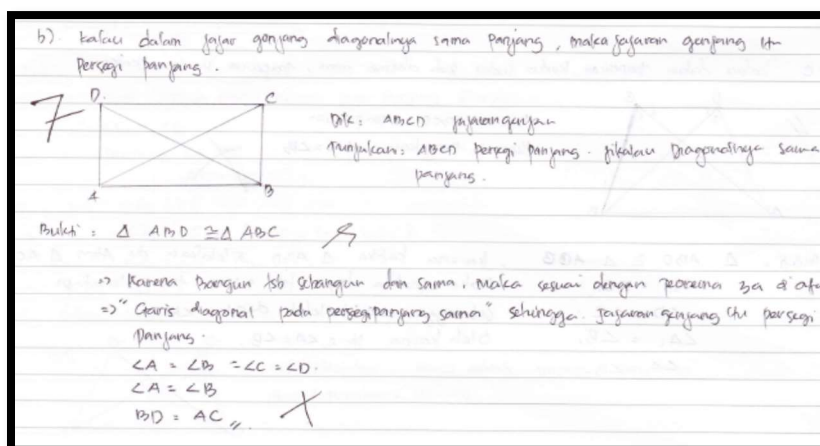 b). Kalau dalam jajar genjang diagonalnya sama panjang, maka jajaran genjang itu
Persegi panjang.
7
D. C
A B
Dik: ABCD jajarangenjang
Tunjukan: ABCD persegi panjang. jikalau Diagonalnya sama
panjang.
Bukti: Δ ABD ≅ Δ ABC
=> Karena Bangun tsb sebangun dan sama. Maka sesuai dengan teorema 3a di
=> "Garis diagonal pada persegi panjang sama" sehingga. Jajaran genjang itu persegi
Panjang.
∠A = ∠B = ∠C = ∠D.
∠A = ∠B
BD = AC